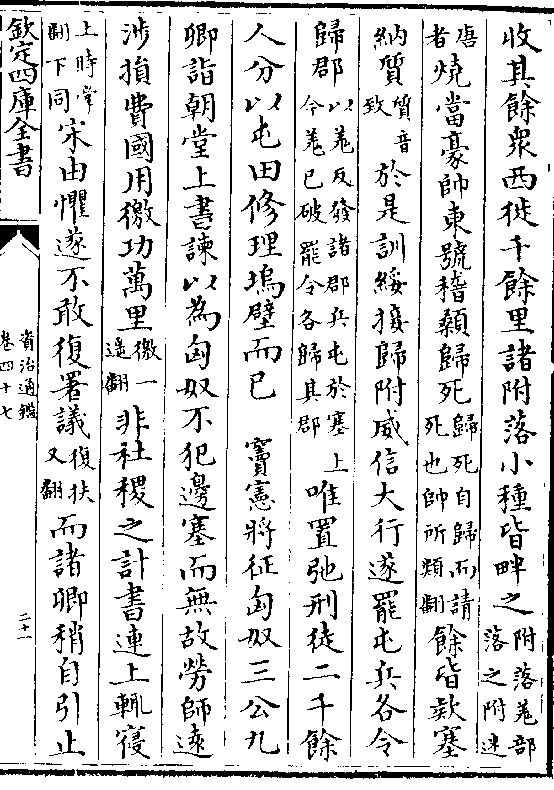 收其餘衆西徙千餘里諸附落小種皆畔之附落羌部落之附迷
唐者燒當豪帥東號稽顙歸死歸死自歸而請死也帥所類翻餘皆欵塞
納質質音致於是訓綏接歸附威信大行遂罷屯兵各令
歸郡以羌反發諸郡兵屯於塞上今羌已破罷令各歸其郡唯置弛刑徒二千餘
人分以屯田修理塢壁而已　竇憲將征匈奴三公九
卿詣朝堂上書諫以為匈奴不犯邊塞而無故勞師逺
涉損費國用徼功萬里徼一遥翻非社稷之計書連上輒寑
上時掌翻下同宋由懼遂不敢復署議復扶又翻而諸卿稍自引止
欽定四庫全書
資治通鑑
卷四十七
二十一